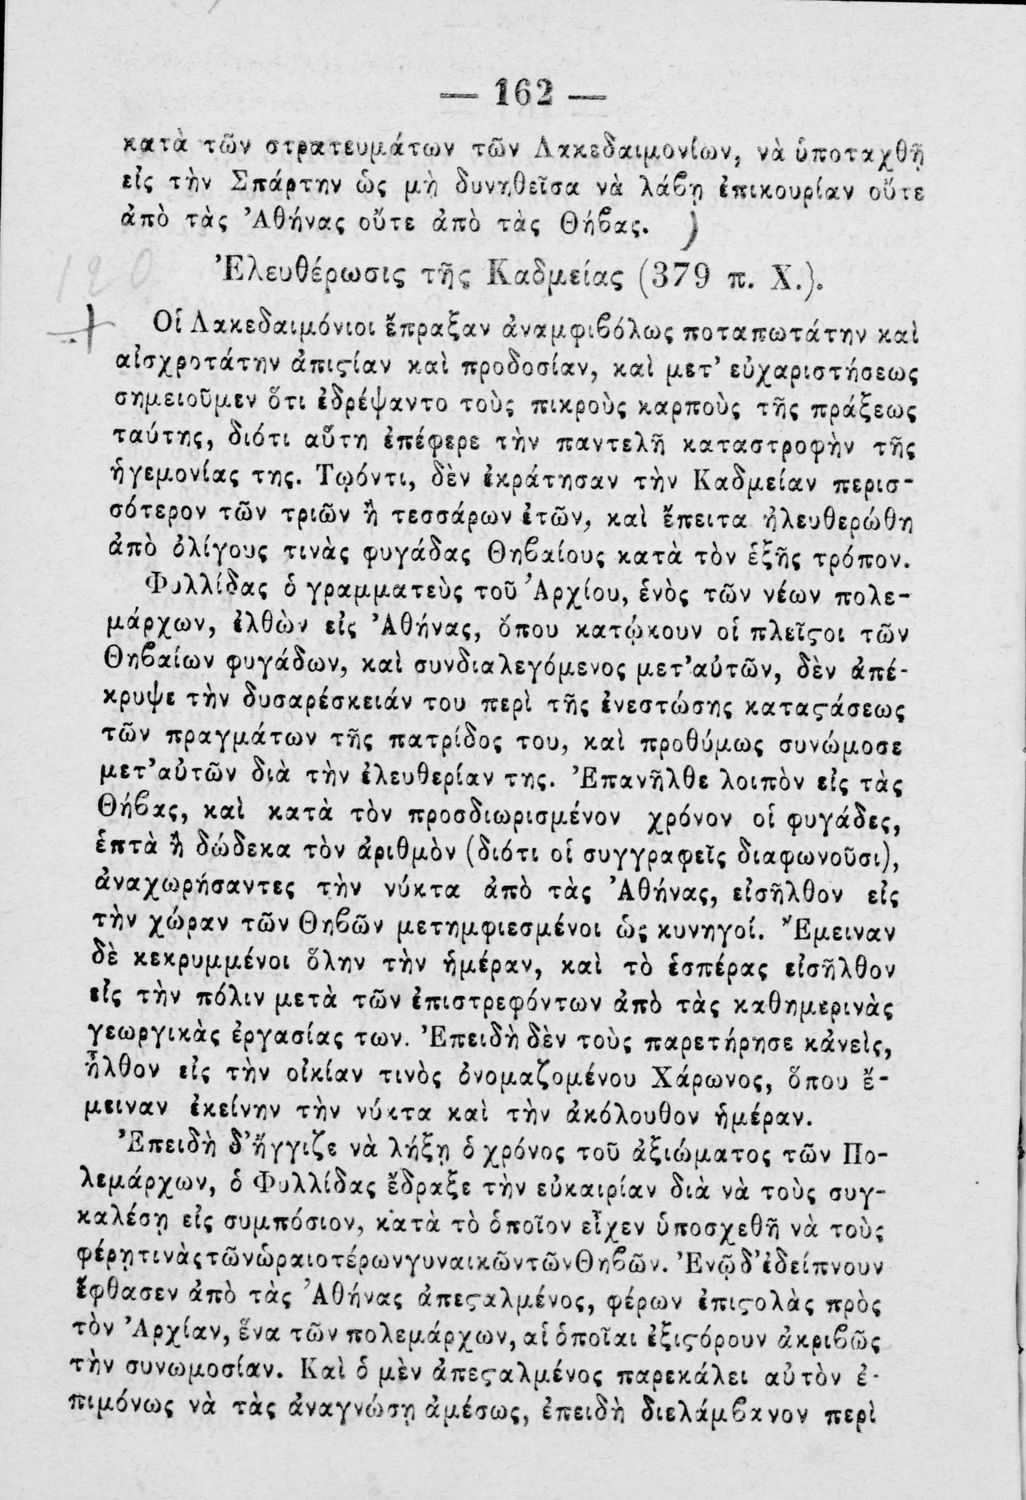 — 162 —
κατὰ τῶν στρατευμάτων τῶν Λακεδαιμονίων, νὰ ὑποταχθῇ
εἰς τὴν Σπάρτην ὡς μὴ δυνηθεῖσα νὰ λάϐῃ ἐπικουρίαν οὔτε
ἀπὸ τὰς Ἀθήνας οὔτε ἀπὸ τὰς Θήϐας. )
120
Ἐλευθέρωσις τῆς Καδμείας (379 π. Χ.).
Οἱ Λακεδαιμόνιοι ἔπραξαν ἀναμφιϐόλως ποταπωτάτην καὶ
αἰσχροτάτην ἀπιϛίαν καὶ προδοσίαν, καὶ μετ’ εὐχαριστήσεως
σημειοῦμεν ὅτι ἐδρέψαντο τοὺς πικροὺς καρποὺς τῆς πράξεως
ταύτης, διότι αὕτη ἐπέφερε τὴν παντελῆ καταστροφὴν τῆς
ἡγεμονίας της. Τῳόντι, δὲν ἐκράτησαν τὴν Καδμείαν περισ-
σότερον τῶν τριῶν ἢ τεσσάρων ἐτῶν, καὶ ἔπειτα ἠλευθερώθη
ἀπὸ ὀλίγους τινὰς φυγάδας Θηϐαίους κατὰ τὸν ἑξῆς τρόπον.
Φυλλίδας ὁ γραμματεὺς τοῦ Ἀρχίου, ἑνὸς τῶν νέων πολε-
μάρχων, ἐλθὼν εἰς Ἀθήνας, ὅπου κατῴκουν οἱ πλεῖϛοι τῶν
Θηϐαίων φυγάδων, καὶ συνδιαλεγόμενος μετ’ αὐτῶν, δὲν ἀπέ-
κρυψε τὴν δυσαρέσκειάν του περὶ τῆς ἐνεστώσης καταϛάσεως
τῶν πραγμάτων τῆς πατρίδος του, καὶ προθύμως συνώμοσε
μετ’ αὐτῶν διὰ τὴν ἐλευθερίαν της. Ἐπανῆλθε λοιπὸν εἰς τὰς
Θήϐας, καὶ κατὰ τὸν προσδιωρισμένον χρόνον οἱ φυγάδες,
ἑπτὰ ἢ δώδεκα τὸν ἀριθμὸν (διότι οἱ συγγραφεῖς διαφωνοῦσι),
ἀναχωρήσαντες τὴν νύκτα ἀπὸ τὰς Ἀθήνας, εἰσῆλθον εἰς
τὴν χώραν τῶν Θηϐῶν μετημφιεσμένοι ὡς κυνηγοί. Ἔμειναν
δὲ κεκρυμμένοι ὅλην τὴν ἡμέραν, καὶ τὸ ἑσπέρας εἰσῆλθον
εἰς τὴν πόλιν μετὰ τῶν ἐπιστρεφόντων ἀπὸ τὰς καθημερινὰς
γεωργικὰς ἐργασίας των. Ἐπειδὴ δὲν τοὺς παρετήρησε κἀνεὶς,
ἦλθον εἰς τὴν οἰκίαν τινὸς ὀνομαζομένου Χάρωνος, ὅπου ἔ-
μειναν ἐκείνην τὴν νύκτα καὶ τὴν ἀκόλουθον ἡμέραν.
Ἐπειδὴ δ’ ἤγγιζε νὰ λήξῃ ὁ χρόνος τοῦ ἀξιώματος τῶν Πο-
λεμάρχων, ὁ Φυλλίδας ἔδραξε τὴν εὐκαιρίαν διὰ νὰ τοὺς συγ-
καλέσῃ εἰς συμπόσιον, κατὰ τὸ ὁποῖον εἶχεν ὑποσχεθῆ νὰ τοὺς
φέρῃ τινὰς τῶν ὡραιοτέρων γυναικῶν τῶν Θηϐῶν. Ἐνῷ δ’ ἐδείπνουν
ἔφθασεν ἀπὸ τὰς Ἀθήνας ἀπεϛαλμένος, φέρων ἐπιϛολὰς πρὸς
τὸν Ἀρχίαν, ἕνα τῶν πολεμάρχων, αἱ ὁποῖαι ἐξιϛόρουν ἀκριϐῶς
τὴν συνωμοσίαν. Καὶ ὁ μὲν ἀπεϛαλμένος παρεκάλει αὐτὸν ἐ-
πιμόνως νὰ τὰς ἀναγνώσῃ ἀμέσως, ἐπειδὴ διελάμϐανον περὶ